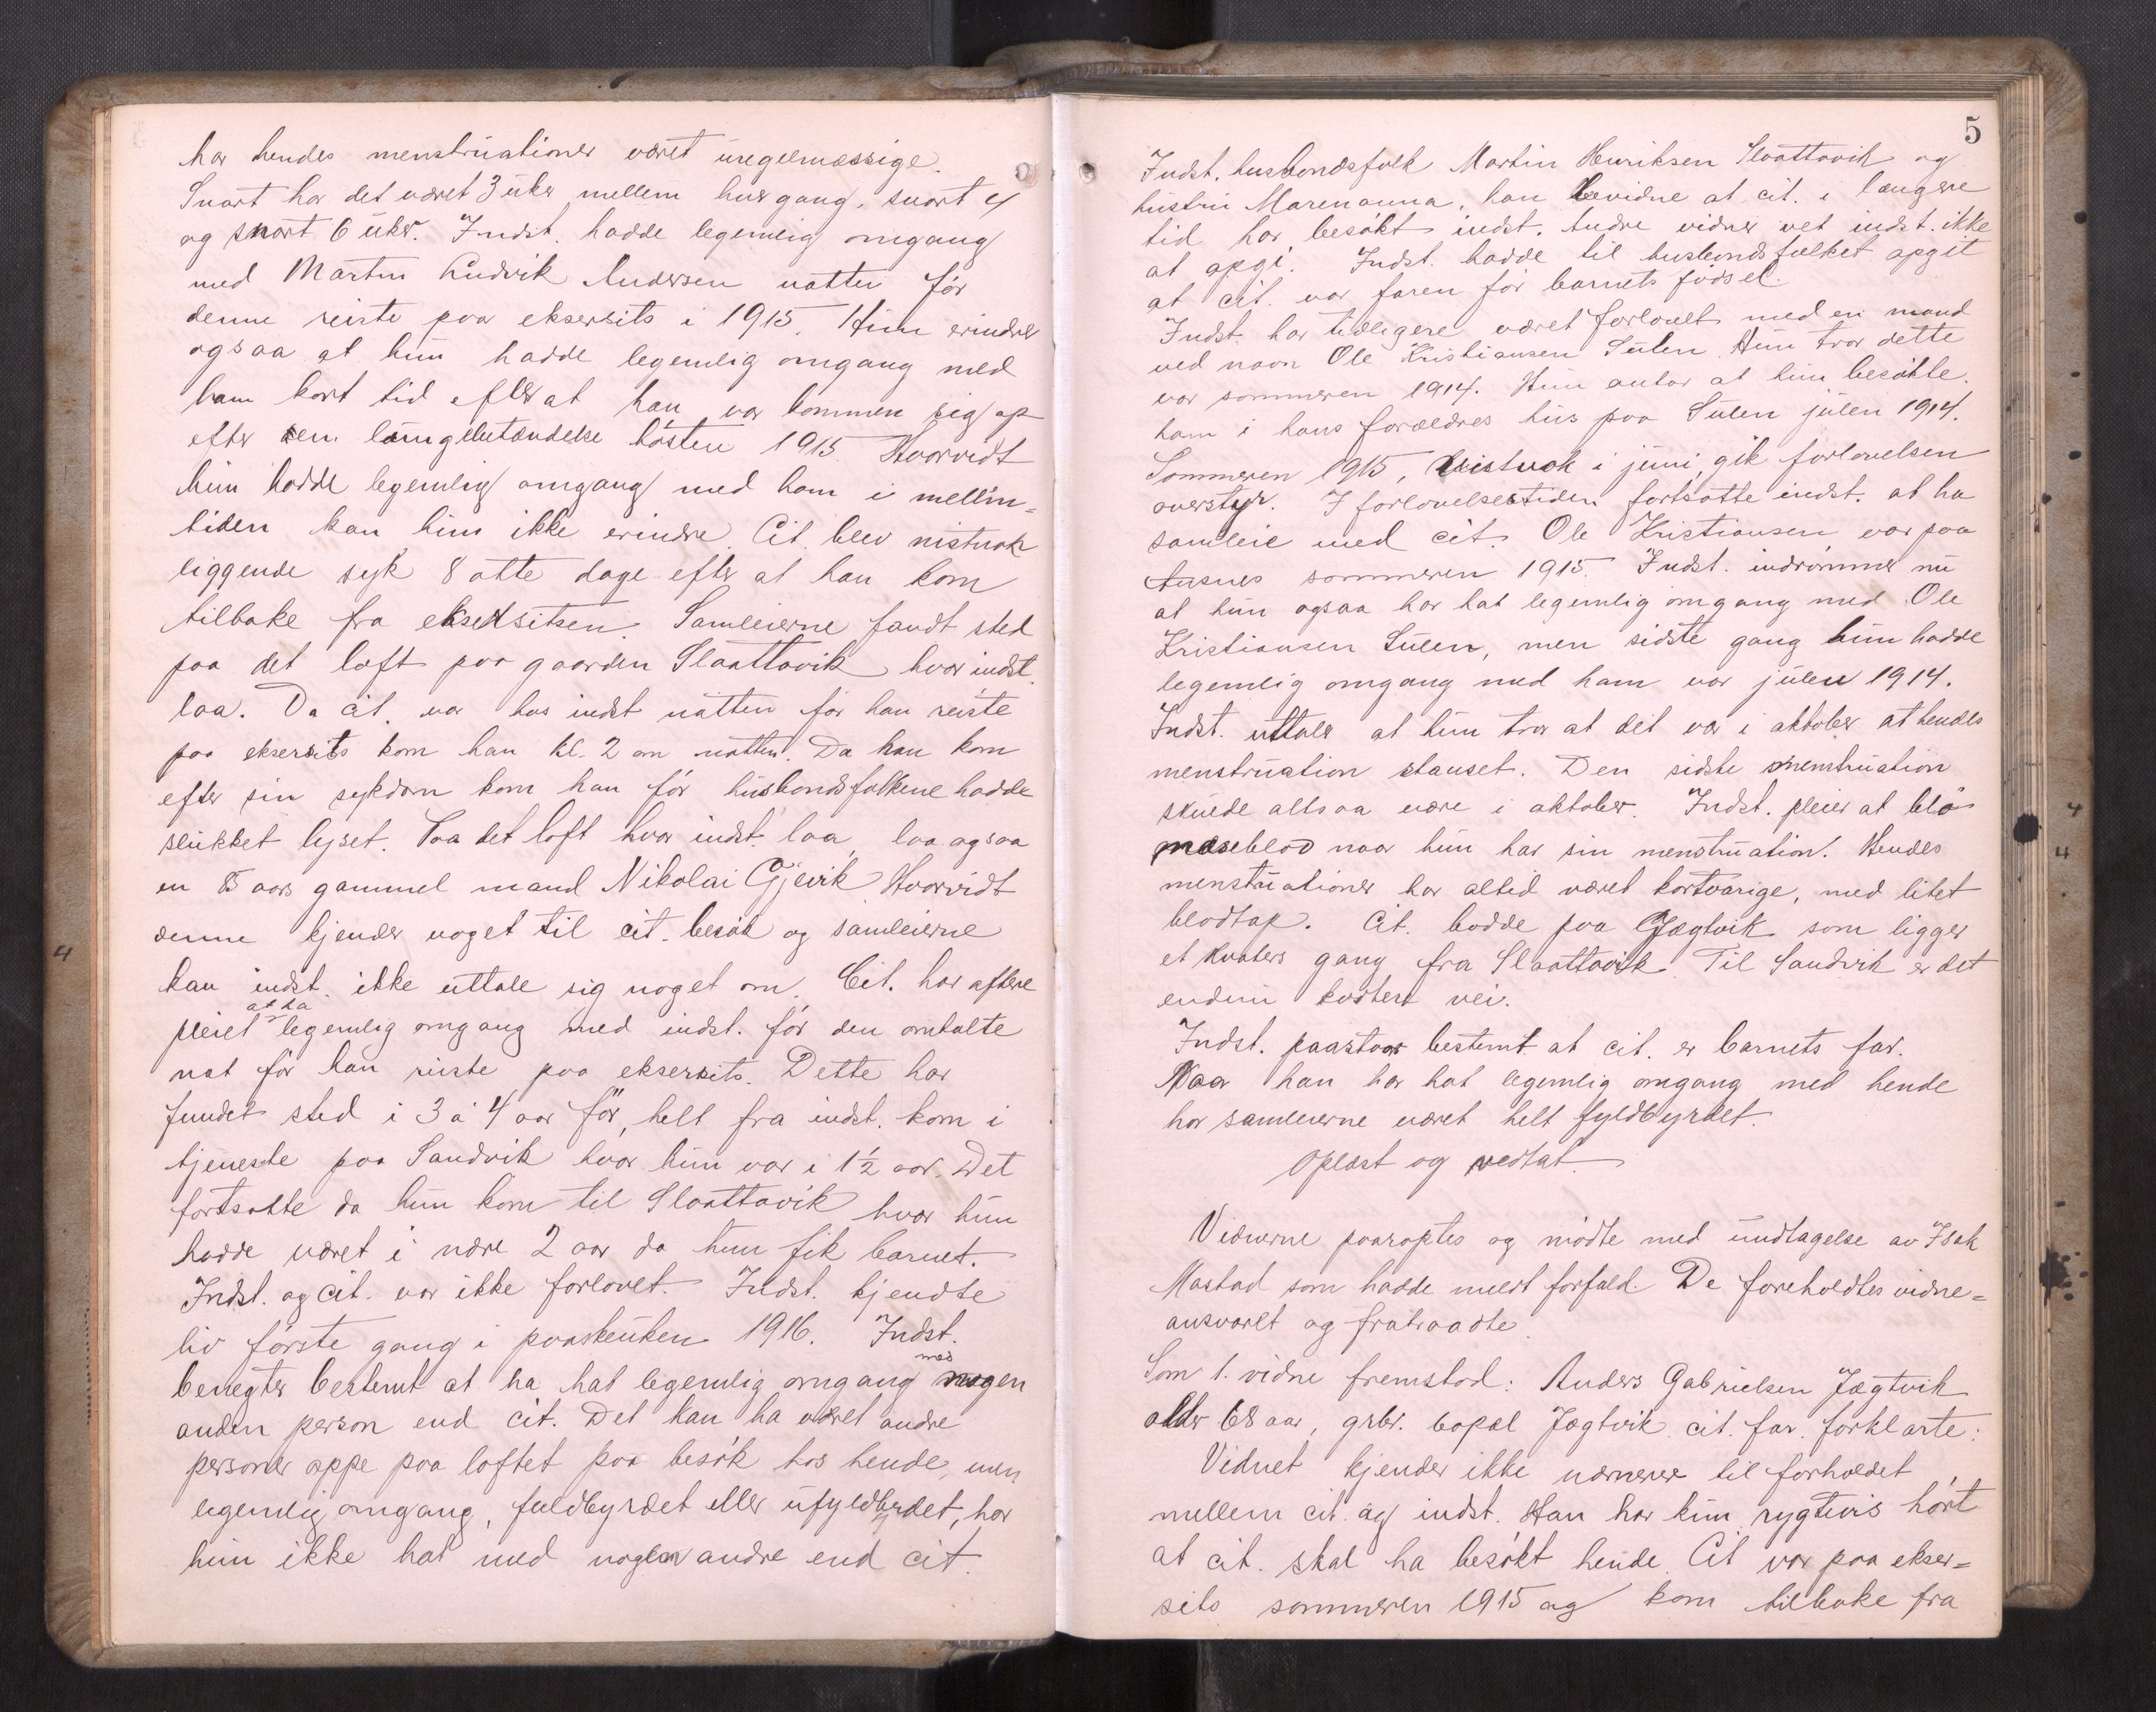 har hendes menstruationer været uregelmæssige.
Snart har det været 3 uker mellem hver gang, snart 4
og snart 6 uker. Indst. hadde legemlig omgang
med Martin Ludvik Andersen natten før
denne reiste paa eksersits i 1915. Hun erindrer
ogsaa at hun hadde legemlig omgang med
ham kort tid efter at han var kommen sig op
efter en lungebetændelse høsten 1915. Hvorvidt
hun hadde legemlig omgang med ham i mellem-
tiden kan hun ikke erindre. Cit. blev nistnok
liggende syk 8 otte dage efter at han kom
tilbake fra eksersitsen. Samleierne fandt sted
paa det loft paa gaarden Slaattavik hvor indst.
laa. Da cit. var hos indst natten før han reiste
paa eksersits kom han kl. 2 om natten. Da han kom
efter sin sykdom kom han før husbondsfolkene hadde
slukket lyset. Paa det loft hvor indst. laa, laa ogsaa
en 85 aars gammel mand Nikolai Gjevik. Hvorvidt
denne kjender noget til cit. besøk og samleierne
kan indst. ikke uttale sig noget om. Cit. har oftere
pleiet at ha legemlig omgang med indst. før den omtalte
nat før han reiste paa eksersits. Dette har
fundet sted i 3 à 4 aar før, helt fra indst. kom i
tjeneste paa Sandvik hvor hun var i 1½ aar. Det
fortsatte da hun kom til Slaattavik hvor hun
hadde været i nære 2 aar da hun fik barnet.
Indst. og cit. var ikke forlovet. Indst. kjendte
liv første gang i paaskeuken 1916. Indst.
benegter bestemt at ha hat legemlig omgang med nogen
anden person end cit. Det kan ha været andre
personer oppe paa loftet paa besøk hos hende, men
legemlig omgang, fuldbyrdet eller ufyldbyrdet, har
hun ikke hat med nogen andre end cit.
5
Indst. husbondsfolk Martin Henriksen Slaattavik og
hustru Marenanna, kan bevidne at cit. i længere
tid har besøkt indst. Andre vidner vet indst. ikke
at opgi. Indst. hadde til husbondsfolket opgit
at cit. var faren før barnets fødsel.
Indst. har tidligere været forlovet med en mand
ved navn Ole Kristiansen Sulen. Hun tror dette
var sommeren 1914. Hun antar at hun besøkte
ham i hans forældres hus paa Sulen julen 1914.
Sommeren 1915, vistnok i juni, gik forlovelsen
overstyr. I forlovelsestiden fortsatte indst. at ha
samleie med cit. Ole Kristiansen var paa
Husnes sommeren 1915. Indst. indrømmer nu
at hun ogsaa har hat legemlig omgang med Ole
Kristiansen Sulen, men sidste gang hun hadde
legemlig omgang med ham var julen 1914.
Indst. uttaler at hun tror at det var i oktober at hendes
menstruation stanset. Den sidste menstruation
skulde altsaa være i oktober. Indst. pleier at blø
næseblod naar hun har sin menstruation. Hendes
menstruationer har altid været kortvarige, med litet
blodtap. Cit. bodde paa Jægtvik som ligger
et kvaters gang fra Slaattavik. Til Sandvik er det
endnu kortere vei.
Indst. paastaar bestemt at cit. er barnets far.
Naar han har hat legemlig omgang med hende
har samleierne været helt fyldbyrdet.
Oplæst og vedtat.
Vidnerne paaroptes og mødte med undtagelse av Isak
Mastad som hadde meldt forfald. De foreholdtes vidne-
ansvaret og fratraadte.
Som 1. vidne fremstod: Anders Gabrielsen Jægtvik
alder 68 aar, grbr. bopæl Jægtvik cit. far. forklarte:
Vidnet kjender ikke nærmere til forholdet
mellem cit. og indst. Han har kun rygtevis hørt
at cit. skal ha besøkt hende. Cit var paa ekser-
sits sommeren 1915 og kom tilbake fra